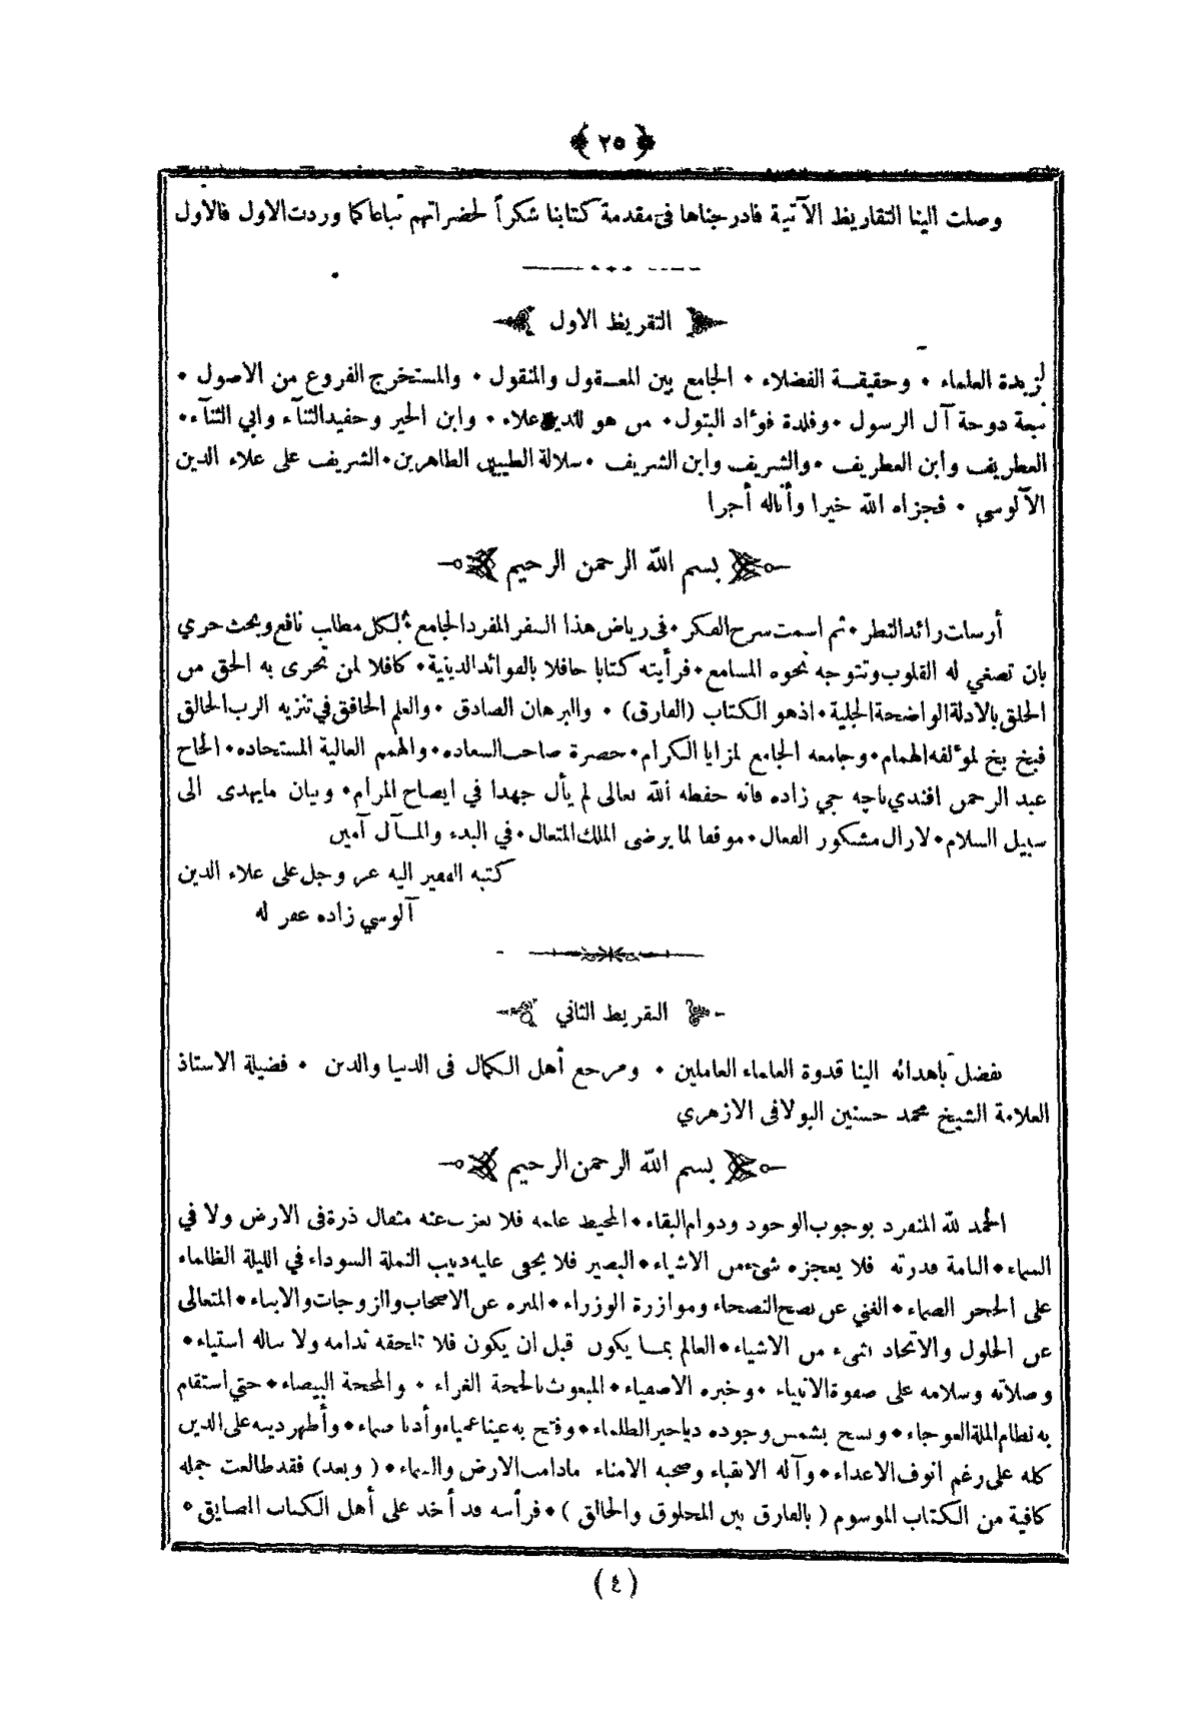 ﴿ ٢٥ ﴾
وصلت الينا التقاريظ الآتية فادرجناها في مقدمة كتابنا شكراً لحضراتهم تباعا كما وردت الاول فالأول
التقريظ الاول
لزبدة العلماء • وحقيقة الفضلاء • الجامع بين المعقول والمنقول • والمستخرج الفروع من الاصول •
نبعة دوحة آل الرسول • وفلذة فؤاد البتول • من هو للدين علاء • وابن الخير وحفيد الثناء وابي الثناء •
الغطريف وابن الغطريف • والشريف وابن الشريف • سلالة الطيبين الطاهرين • الشريف على علاء الدين
الآلوسي • فجزاه الله خيرا وأناله أجرا
بسم الله الرحمن الرحيم
أرسلت رائد النظر • ثم اسمت سرح الفكر • في رياض هذا السفر المفرد الجامع • لكل مطلب نافع وبحث حري
بان تصغي له القلوب وتتوجه نحوه المسامع • فرأيته كتابا حافلا بالفوائد الدينية • كافلا لمن تحرى به الحق من
الخلق بالادلة الواضحة الجلية • اذ هو الكتاب (الفارق) • والبرهان الصادق • والعلم الخافق في تنزيه الرب الخالق
فبخ بخ لمؤلفه الهمام • وجامعه الجامع لمزايا الكرام • حضرة صاحب السعاده • والهمم العالية المستجاده • الحاج
عبد الرحمن افندي باچه جي زاده فانه حفظه الله تعالى لم يأل جهدا في ايضاح المرام • وبيان مايهدى الى
سبيل السلام • لازال مشكور الفعال • موفقا لما يرضى الملك المتعال • في البدء والمآل آمين
كتبه الفقير اليه عز وجل على علاء الدين
آلوسي زاده غفر له
التقريظ الثاني
تفضل بأهدائه الينا قدوة العلماء العاملين • ومرجع أهل الكمال فى الدنيا والدين • فضيلة الاستاذ
العلامة الشيخ محمد حسنين البولاقى الازهري
بسم الله الرحمن الرحيم
الحمد لله المنفرد بوجوب الوجود ودوام البقاء • المحيط علمه فلا يعزب عنه مثقال ذرة فى الارض ولا في
السماء • التامة قدرته فلا يعجزه شيء من الاشياء • البصير فلا يخفى عليه دبيب النملة السوداء في الليلة الظلماء
على الحجر الصماء • الغني عن نصح النصحاء وموازرة الوزراء • المنزه عن الاصحاب والزوجات والابناء • المتعالى
عن الحلول والاتحاد بشيء من الاشياء • العالم بما يكون قبل ان يكون فلا تلحقه ندامه ولا يناله استياء •
وصلاته وسلامه على صفوة الانبياء • وخيره الاصفياء • المبعوث بالحجة الغراء • والمحجة البيضاء • حتي استقام
به نظام الملة العوجاء • ونسخ بشمس وجوده دياجير الظلماء • وفتح به عينا عمياء وأذنا صماء • وأظهر دينه على الدين
كله على رغم انوف الاعداء • وآله الاتقياء وصحبه الامناء مادامت الارض والسماء • ( وبعد ) فقد طالعت جمله
كافية من الكتاب الموسوم ( بالفارق بين المخلوق والخالق ) • فرأيته قد أخذ على أهل الكتاب المضايق •
( ٤ )